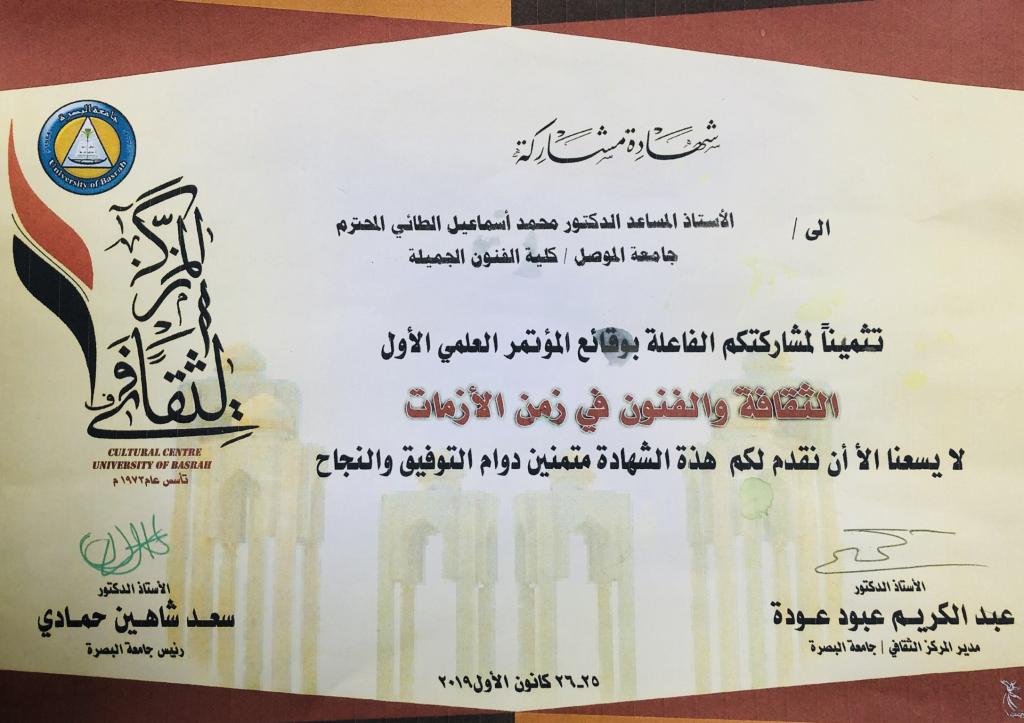 شهادة مشاركة
الى / الأستاذ المساعد الدكتور محمد أسماعيل الطائي المحترم
جامعة الموصل / كلية الفنون الجميلة
تثميناً لمشاركتكم الفاعلة بوقائع المؤتمر العلمي الأول
الثقافة والفنون في زمن الأزمات
لا يسعنا الأ أن نقدم لكم هذة الشهادة متمنين دوام التوفيق والنجاح
جامعة البصرة
University of Basrah
المركز الثقافي
CULTURAL CENTRE
UNIVERSITY OF BASRAH
تأسس عام ١٩٧٢ م
الأستاذ الدكتور
عبد الكريم عبود عودة
مدير المركز الثقافي / جامعة البصرة
الأستاذ الدكتور
سعد شاهين حمادي
رئيس جامعة البصرة
٢٥-٢٦ كانون الأول ٢٠١٩